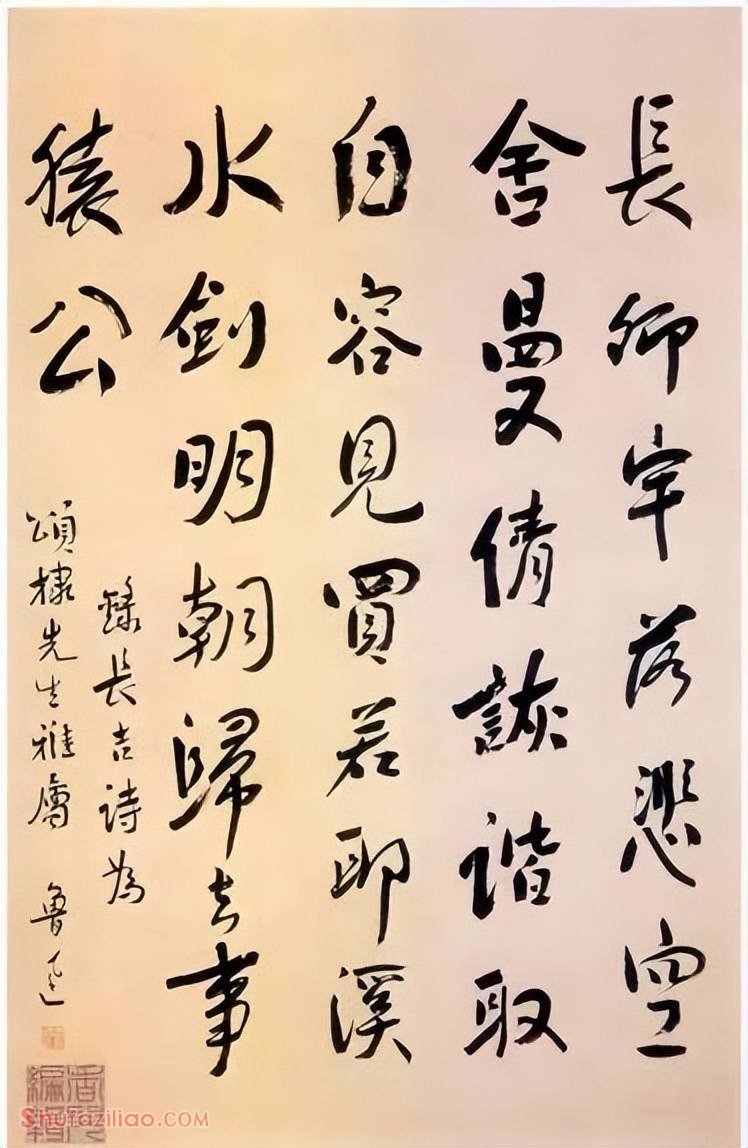 長卿牢落悲空
舍曼倩詼諧取
自容見買若耶溪
水劍明朝歸去事
猿公
錄長吉詩為
頌棣先生雅屬 魯迅
Shufaziliao.com